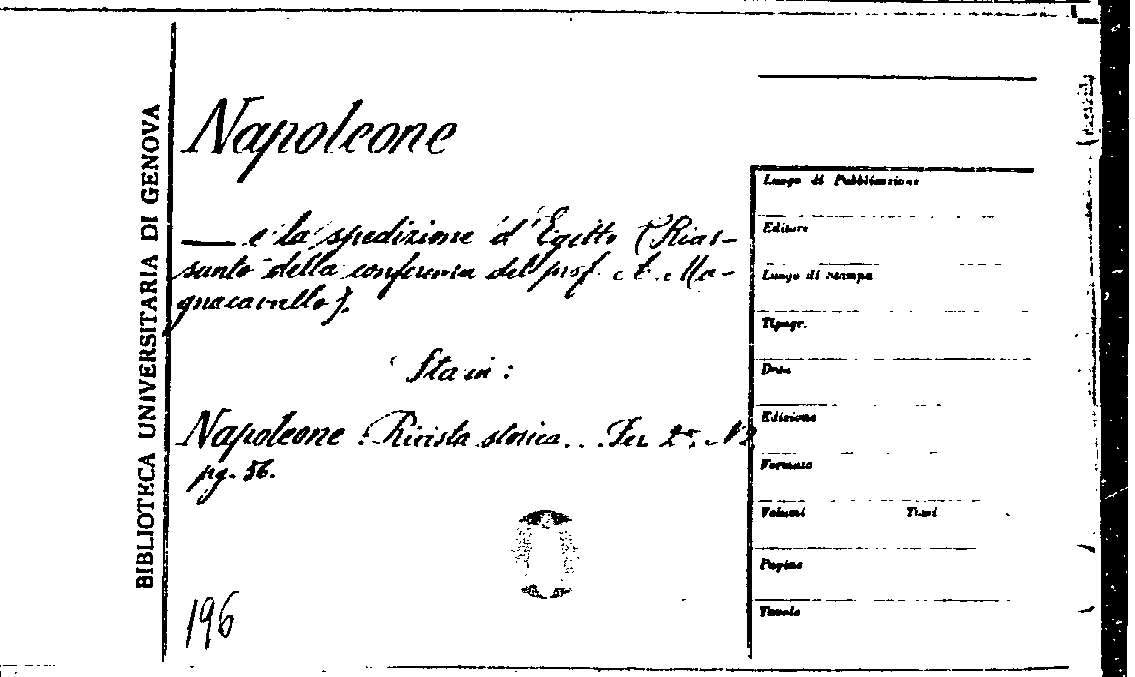 BIBLIOTECA UNIVERSITARIA DI GENOVA
Napoleone
— e la spedizione d'Egitto (Rias-
sunto della conferenza del prof. A. Ma-
gnacavallo).
Sta in:
Napoleone. Rivista storica.. Ser 2ª. N 2
pg. 56.
196
Luogo di Pubblicazione
Editore
Luogo di stampa
Tipogr.
Data
Edizione
Formato
Volumi Tomi
Pagine
Tavole